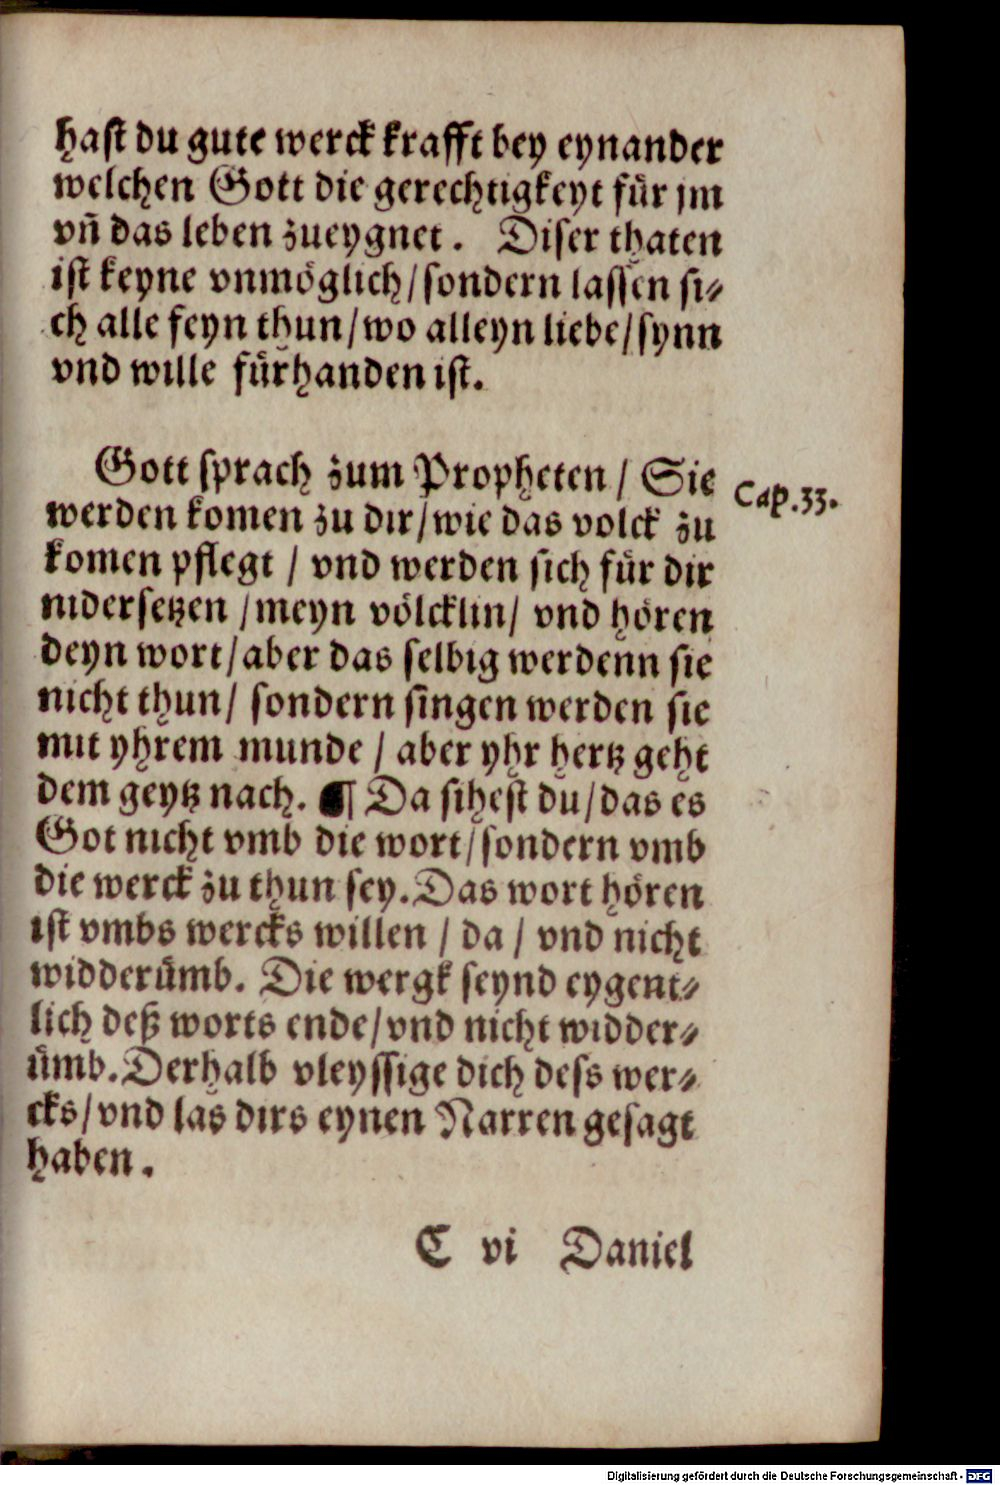 hast du gute werck krafft bey eynander
welchen Gott die gerechtigkeyt für jm
vñ das leben zueygnet. Diser thaten
ist keyne vnmöglich/sondern lassen si⸗
ch alle feyn thun/wo alleyn liebe/synn
vnd wille fürhanden ist.
Gott sprach zum Propheten/ Sie
Cap.33.
werden komen zu dir/wie das volck zu
komen pflegt / vnd werden sich für dir
nidersetzen /meyn völcklin/ vnd hören
deyn wort/aber das selbig werdenn sie
nicht thun/ sondern singen werden sie
mit yhrem munde / aber yhr hertz geht
dem geytz nach. ¶ Da sihest du/das es
Got nicht vmb die wort/sondern vmb
die werck zu thun sey. Das wort hören
ist vmbs wercks willen / da / vnd nicht
widderümb. Die wergk seynd eygent⸗
lich deß worts ende/vnd nicht widder⸗
ümb. Derhalb vleyssige dich dess wer⸗
cks/vnd las dirs eynen Narren gesagt
haben.
C vi Daniel
Digitalisierung gefördert durch die Deutsche Forschungsgemeinschaft - DFG